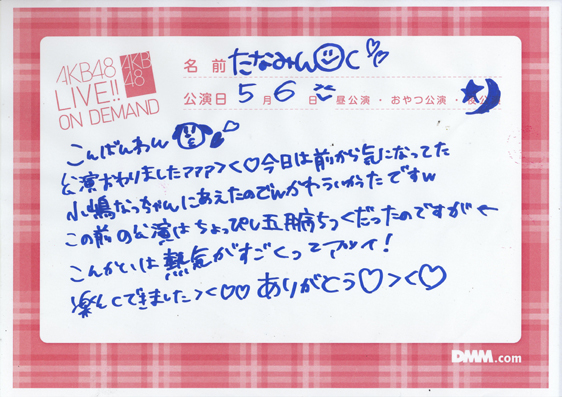 AKB48
LIVE!!
ON DEMAND
AKB
48
名前 たなみん☺C♡♡
公演日 5月6日 昼公演・おやつ公演・夜公演
こんばんわん
公演おわりましたァァァ><♡今日は前から気になってた
小嶋なっちゃんにあえたのでんかわういかうたですw
この前の公演はちょっぴし五月病ちっくだったのですが←
こんかいは熱気がすごくってアツイ!
楽しくできました><♡♡ ありがとう♡><♡
DMM.com